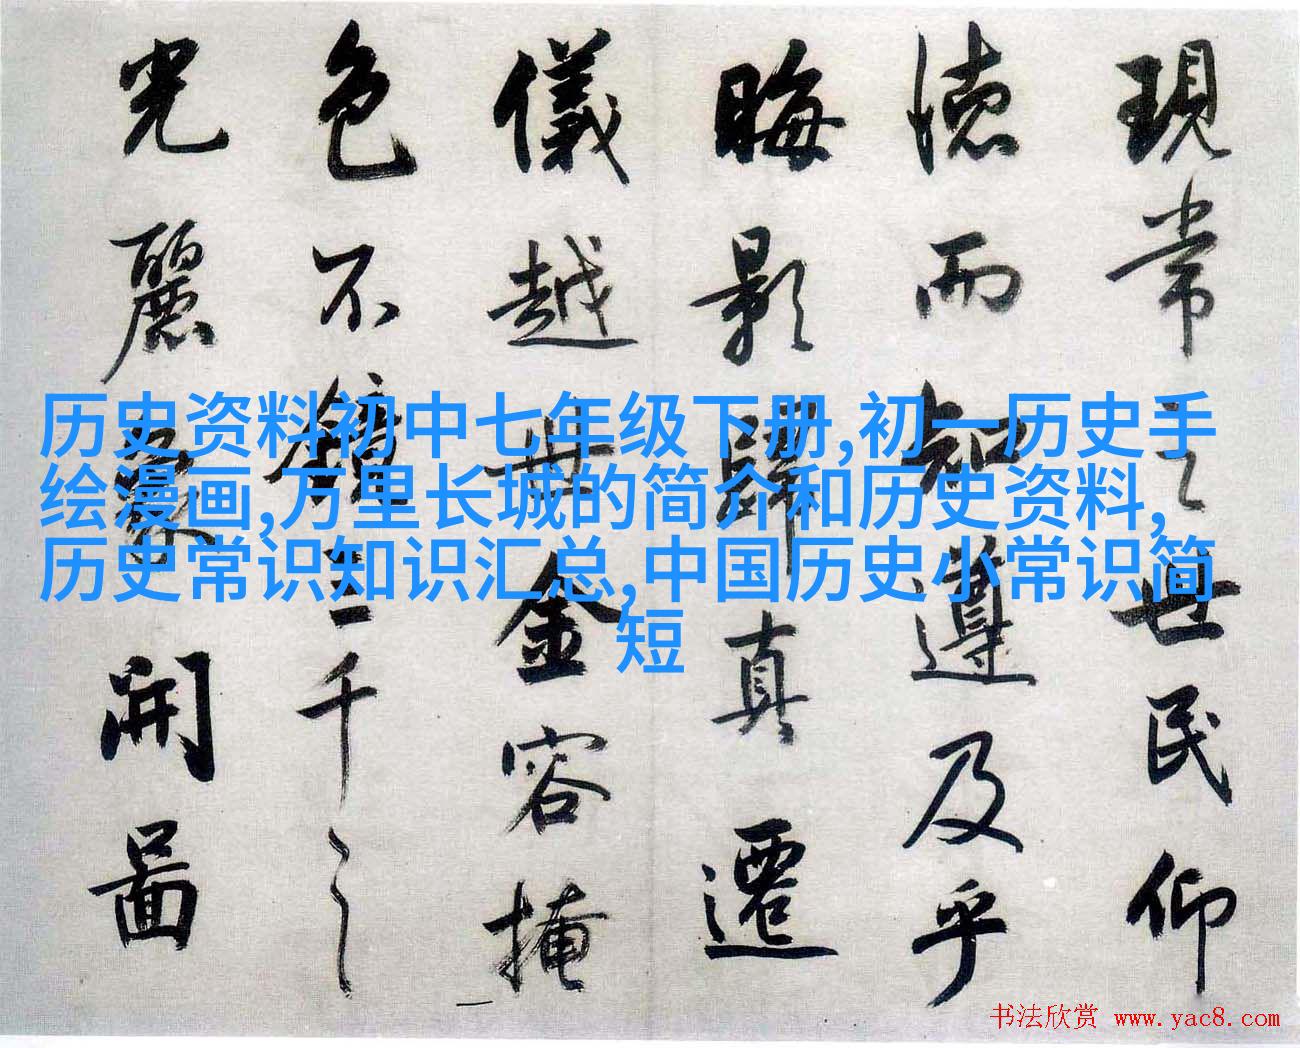 現常之世民仰
德而知遵及乎
晦影歸真遷
儀越世金容掩
色不鏡三千之
光麗象開圖
历史资料初中七年级下册,初一历史手
绘漫画,万里长城的简介和历史资料,
历史常识知识汇总,中国历史小常识简
短
书法欣赏 www.yac8.com